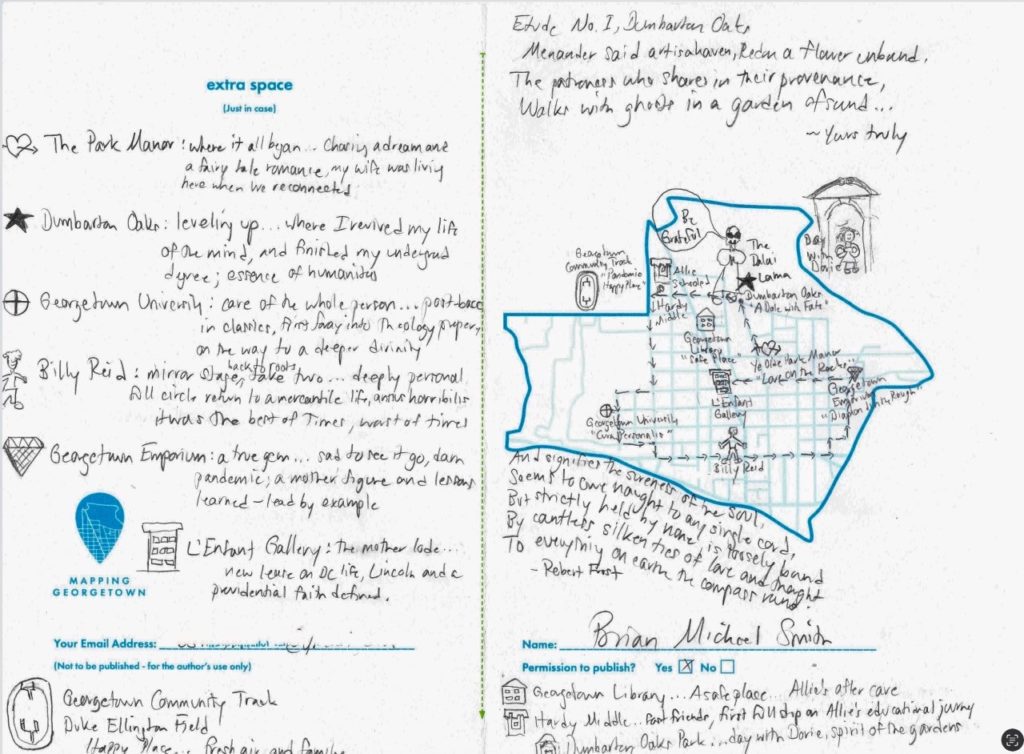 extra space
(Just in case)
The Park Manor: where it all began... Chasing a dream and
a fairy tale romance, my wife was living
here when we reconnected
Dumbarton Oaks: leveling up... where I revived my life
of the mind, and finished my undergrad
degree; essence of humanitas
Georgetown University: care of the whole person... post-bacc
in classics, first foray into theology proper,
on the way to a deeper divinity
back to roots
Billy Reid: mirror stage, take two... deeply personal
full circle return to a mercantile life, annus horribilis
it was the best of times, worst of times
Georgetown Emporium: a true gem... sad to see it go, darn
pandemic; a mother figure and lessons
learned - lead by example
L'Enfant Gallery: the mother lode...
new lease on DC life, Lincoln and a
presidential faith defined.
MAPPING
GEORGETOWN
Your Email Address:
(Not to be published - for the author's use only)
Georgetown Community Track
Duke Ellington Field
Happy Place... fresh air and family
Etude No. I, Dumbarton Oaks
Menander said art is a haven, a flower unbound.
The patroness who shares in their provenance,
Walks with ghosts in a garden of sund...
~Yours truly
Be
Grateful
The
Dalai
Lama
Day
With
Dorie
Georgetown
Community Track
"Pandemic
Happy Place"
Allie
Schooled
Hardy
Middle
Dumbarton Oaks
"A Date with Fate"
Georgetown
Library
"Safe Place"
Ye Olde Park Manor
"Love on the Rocks"
L'Enfant
Gallery
Georgetown
Emporium
"Diamond in the Rough"
Georgetown University
"Cura Personalis"
Billy Reid
And signifies the sureness of the soul,
Seems to owe naught to any single cord,
But strictly held by none, is loosely bound
By countless silken ties of love and thought
To everything on earth the compass round.
- Robert Frost
Name: Brian Michael Smith
Permission to publish? Yes X No
Georgetown Library... A safe place... Allie's after care
Hardy Middle... fast friends, first full stop on Allie's educational journey
Dumbarton Oaks Park... day with Dorie, spirit of the gardens